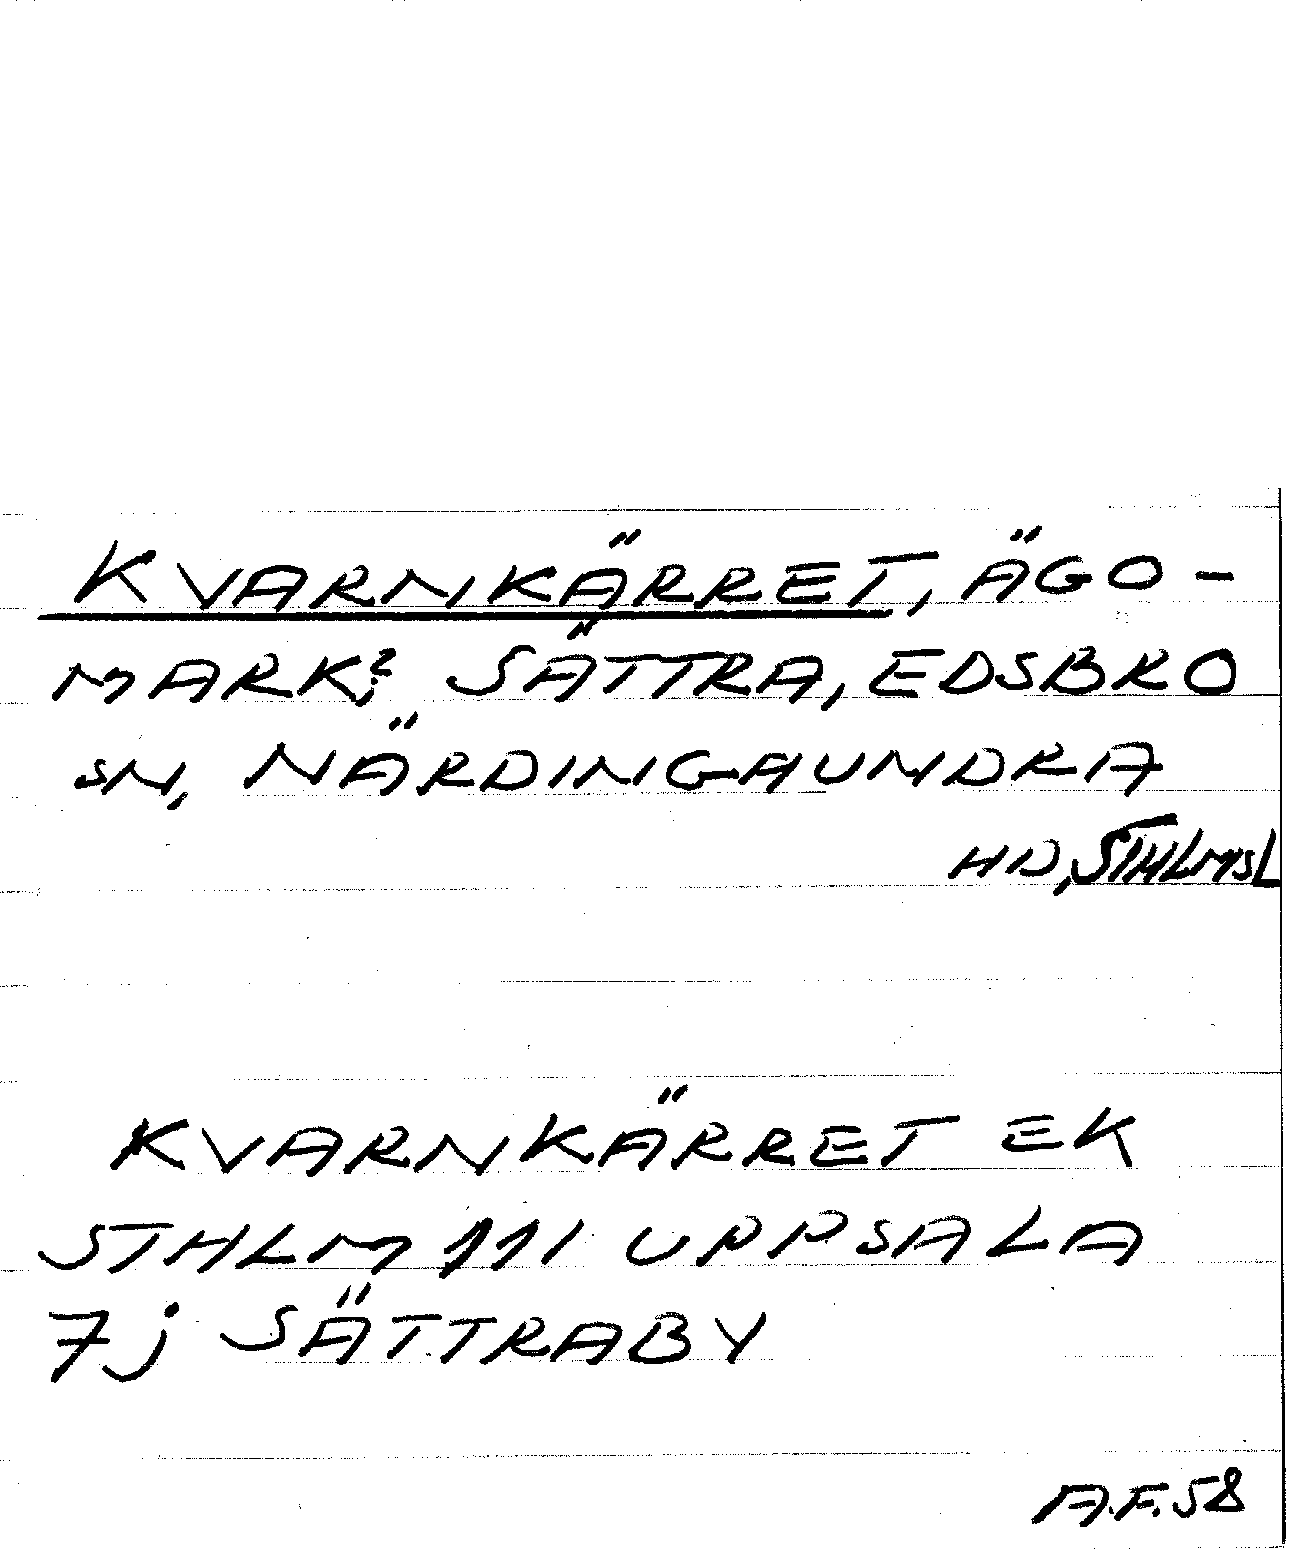 KVARNKÄRRET, ÄGO-
MARK? SÄTTRA, EDSBRO
SN, NÄRDINGAUNDRA
HD, STHLMSL
KVARNKÄRRET EK
STHLM 111 UPPSALA
7j SÄTTRABY
A.F.58